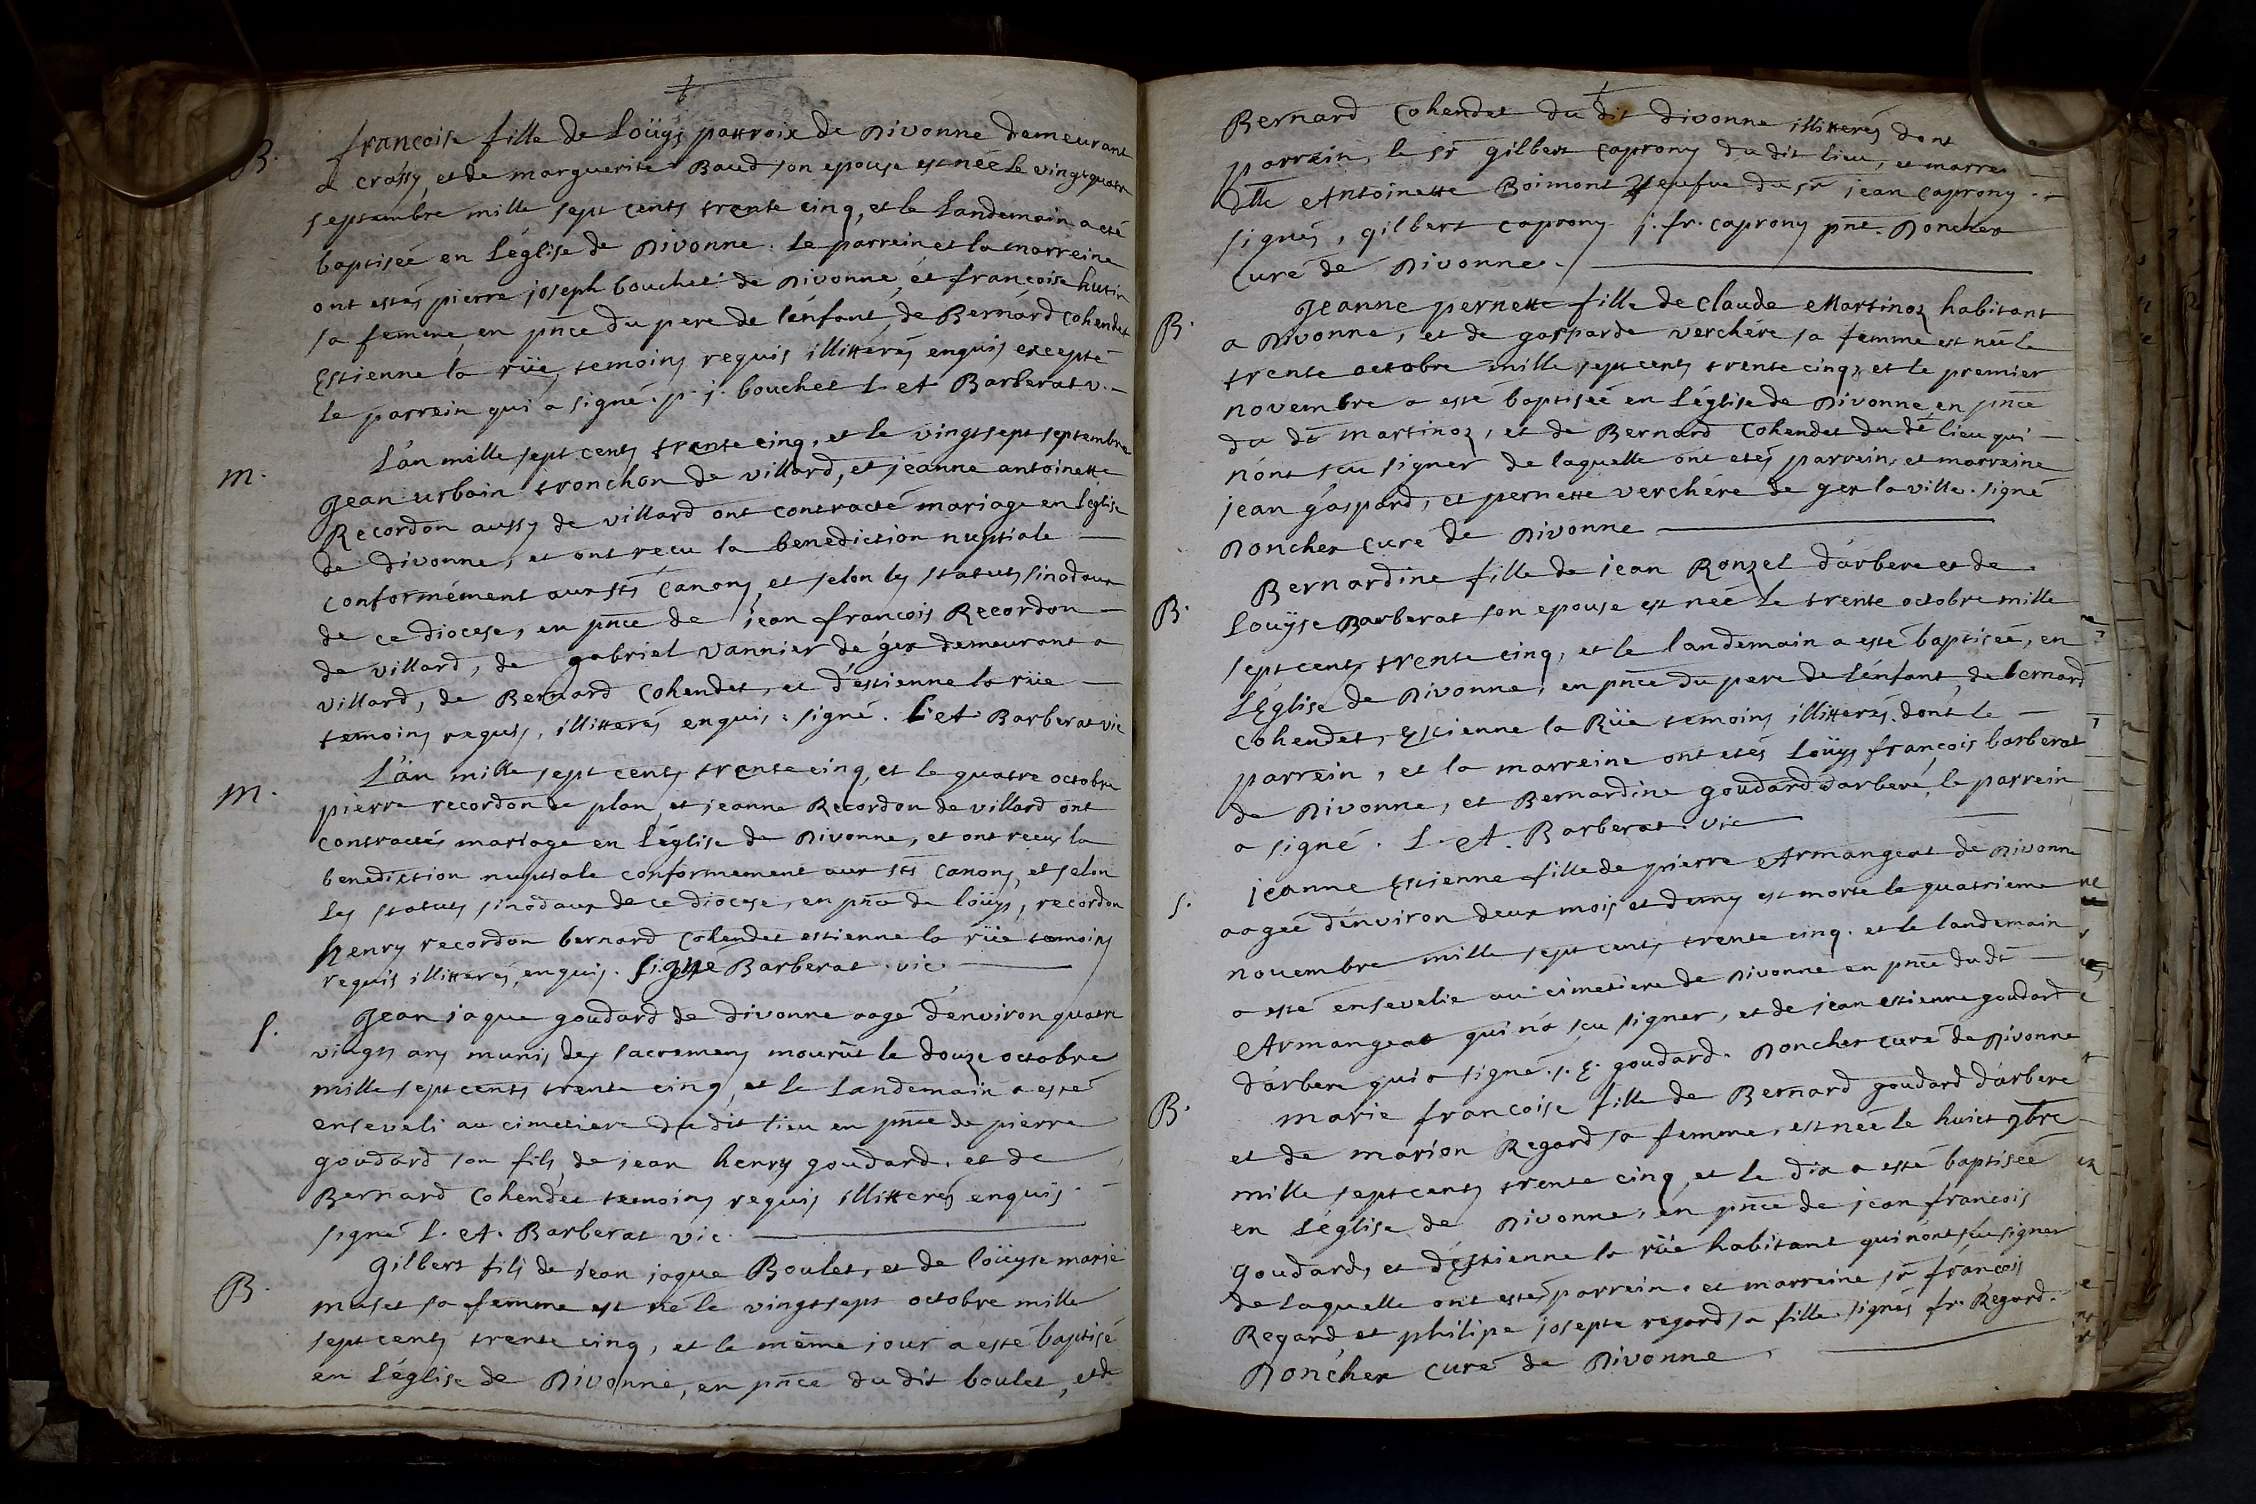 B. françoise fille de Loüys pattroix de Divonne demeurant
a crassy, et de marguerite Baud son epouse est née le vingt quatre
septembre mille sept cents trante cinq, et le Landemain a eté
baptisée en L'église de Divonne. Le parrein et la marreine
ont estés pierre joseph bouchet de Divonne, et françoise hutin
sa femme en pn̄ce du pere de l'énfant, de Bernard Cohendet
Estienne la rüe, temoins requis illitterés enquis excepté
Le parrein qui a signé. p. j. bouchet L. A. Barberat v.
m. L'an mille sept cents trante cinq, et le vingt sept septembre
Jean urbain tronchon de villard, et jeanne antoinette
Recordon aussy de villard ont contracté mariage en L'église
de Divonne, et ont reçu la benediction nuptiale
conformément aux sts Canons, et selon les statuts sinodaux
de ce diocese, en pn̄ce de jean françois Recordon
de villard, de gabriel vannier de gex demeurant a
villard, de Bernard Cohendet, et d'estienne la rüe
temoins requis, illitterés enquis. signé. L. A. Barberat vic
m. L'an mille sept cents trante cinq, et le quatre octobre
pierre recordon de plan, et jeanne Recordon de villard ont
contractés mariage en L'église de Divonne, et ont receu la
benediction nuptiale conformement aux sts Canons, et selon
Les statuts sinodaux de ce diocese, en pn̄ce de loüys, recordon
henry recordon bernard Cohendet estienne la rüe temoins
requis illitterés, enquis. signé Barberat. vic.
S. Jean jaque goudard de divonne aagé d'environ quatre
vingts ans munis des sacremens mourût le douze octobre
mille sept cents trente cinq, et le Landemain a esté
enseveli au cimetiere du dit lieu en pn̄ce de pierre
goudard son fils, de jean henry goudard, et de
Bernard Cohendet temoins requis illitterés enquis.
signé L. A. Barberat vic.
B. Gilbert fils de jean jaque Boulet, et de loüyse marie
muset sa femme est né le vingt sept octobre mille
sept cents trente cinq, et le même jour a esté baptisé
en L'église de Divonne, en pn̄ce du dit boulet, et de
Bernard Cohendet du dit divonne illitterés dont
parrein, le sr gilbert caprony du dit lieu, et marre
dlle Antoinette Boimont veufve du sr jean caprony.
signés, gilbert caprony j. fr. caprony pn̄t. Doncher
Curé de Divonne.
B. Jeanne pernette fille de Claude Martinoz habitant
a Divonne, et de gasparde verchere sa femme est née le
trente octobre mille sept cents trente cinq, et le premier
novembre a esté baptisée en L'église de Divonne en pn̄ce
du dt martinoz, et de Bernard Cohendet du dt lieu qui
n'ont scu signer de laquelle ont etés parrein, et marreine
jean gaspard, et pernette verchére de gex la ville. signé
Doncher Curé de Divonne
B. Bernardine fille de jean Ronzel d'arbere et de
Loüyse Barberat son epouse est née le trente octobre mille
sept cents trente cinq, et le landemain a esté baptisée, en
L'Eglise de Divonne, en pn̄ce du pere de l'énfant, de bernard
Cohendet, Estienne la Rüe temoins illitterés. dont le
parrein, et la marreine ont etés Loüys françois barberat
de Divonne, et Bernardine goudard d'arbere, le parrein
a signé. L. A. Barberat. vic
S. Jeanne Estienne fille de pierre Armangeat de Divonne
aagée d'énviron deux mois et demy est morte le quatrieme
novembre mille sept cents trente cinq. et le landemain
a esté ensevelie au cimetiere de Divonne en pn̄ce du dt
Armangeat qui n'a scu signer, et de jean estienne goudard
d'arbere qui a signé. j. E. goudard. Doncher curé de Divonne
B. Marie françoise fille de Bernard goudard d'arbere
et de marion Regard sa femme, est née le huict 9bre
mille sept cents trente cinq, et le dix a esté baptisée
en L'église de Divonne, en pn̄ce de jean françois
goudard, et d'Estienne la rüe habitant qui n'ont scu signer
de laquelle ont estés parrein, et marreine sr françois
Regard, et philipe josepte regard sa fille. signés fr. Regard.
Doncher curé de Divonne